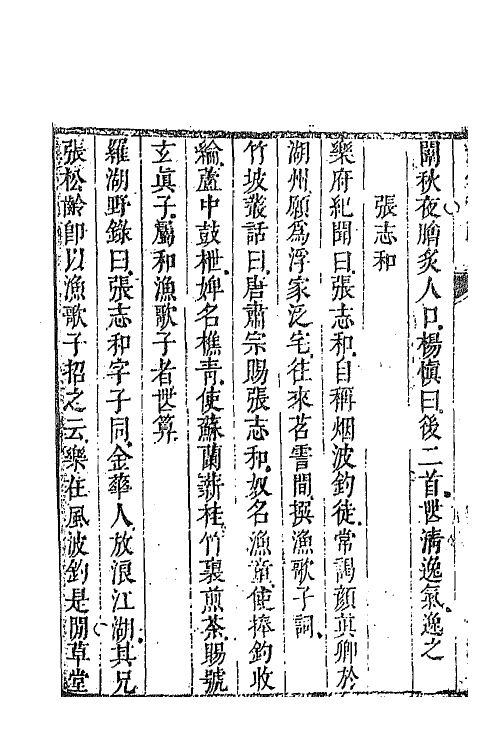 關秋夜膾炙人口楊愼曰後二首世淸逸氣逸之
張志和
樂府紀聞曰張志和自稱烟波釣徒常謁顏真卿於
湖州願爲浮家泛宅往來苕霅間撰漁歌子詞
竹坡叢話曰唐肅宗賜張志和奴名漁童使捧釣收
綸蘆中鼓枻婢名樵靑使蘇蘭薪桂竹裏煎茶賜號
玄眞子屬和漁歌子者世算
羅湖野錄曰張志和字子同金華人放浪江湖其兄
張松齡卽以漁歌子招之云樂在風波釣是閒草堂